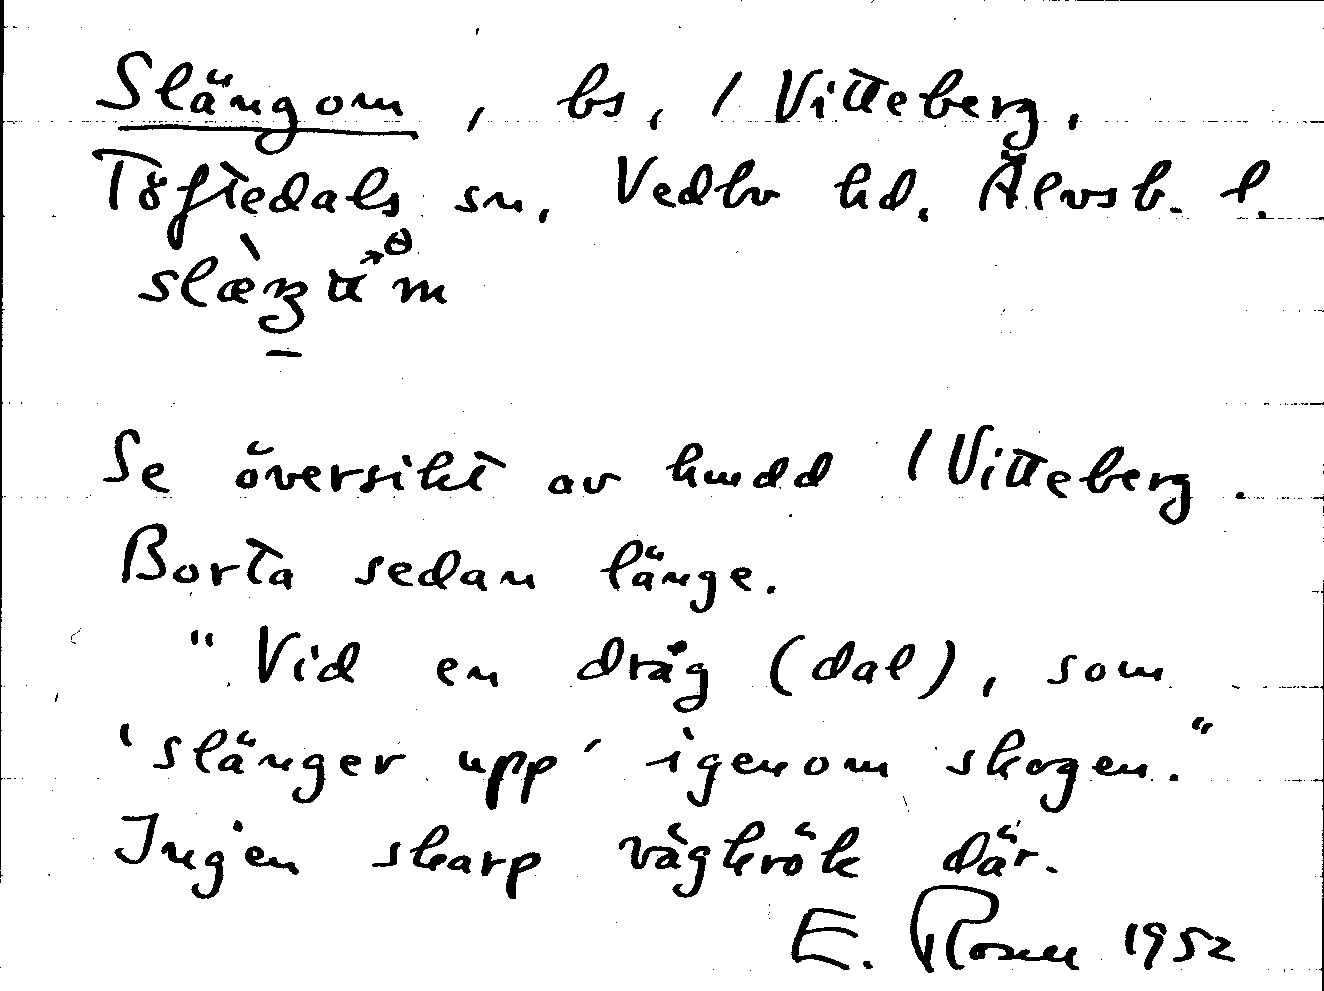 Slängom, bs, / Vitteberg,
Töftedals sn, Vedbo hd, Älvsb. l.
Se översikt av hmdd / Vitteberg.
Borta sedan länge.
"Vid en dråg (dal), som
'slänger upp' igenom skogen."
Ingen skarp vägkrök där.
E. Rosell 1952